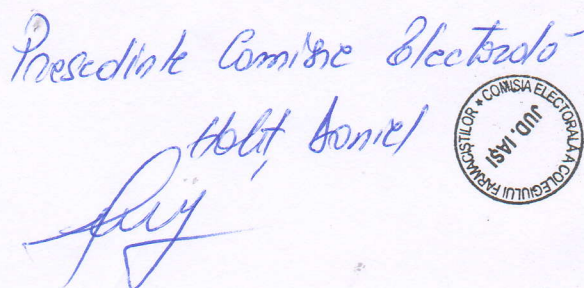 Presedinte Comisie Electorală
Holiț Daniel
COMISIA ELECTORALĂ A COLEGIULUI FARMACIȘTILOR *
JUD. IAȘI